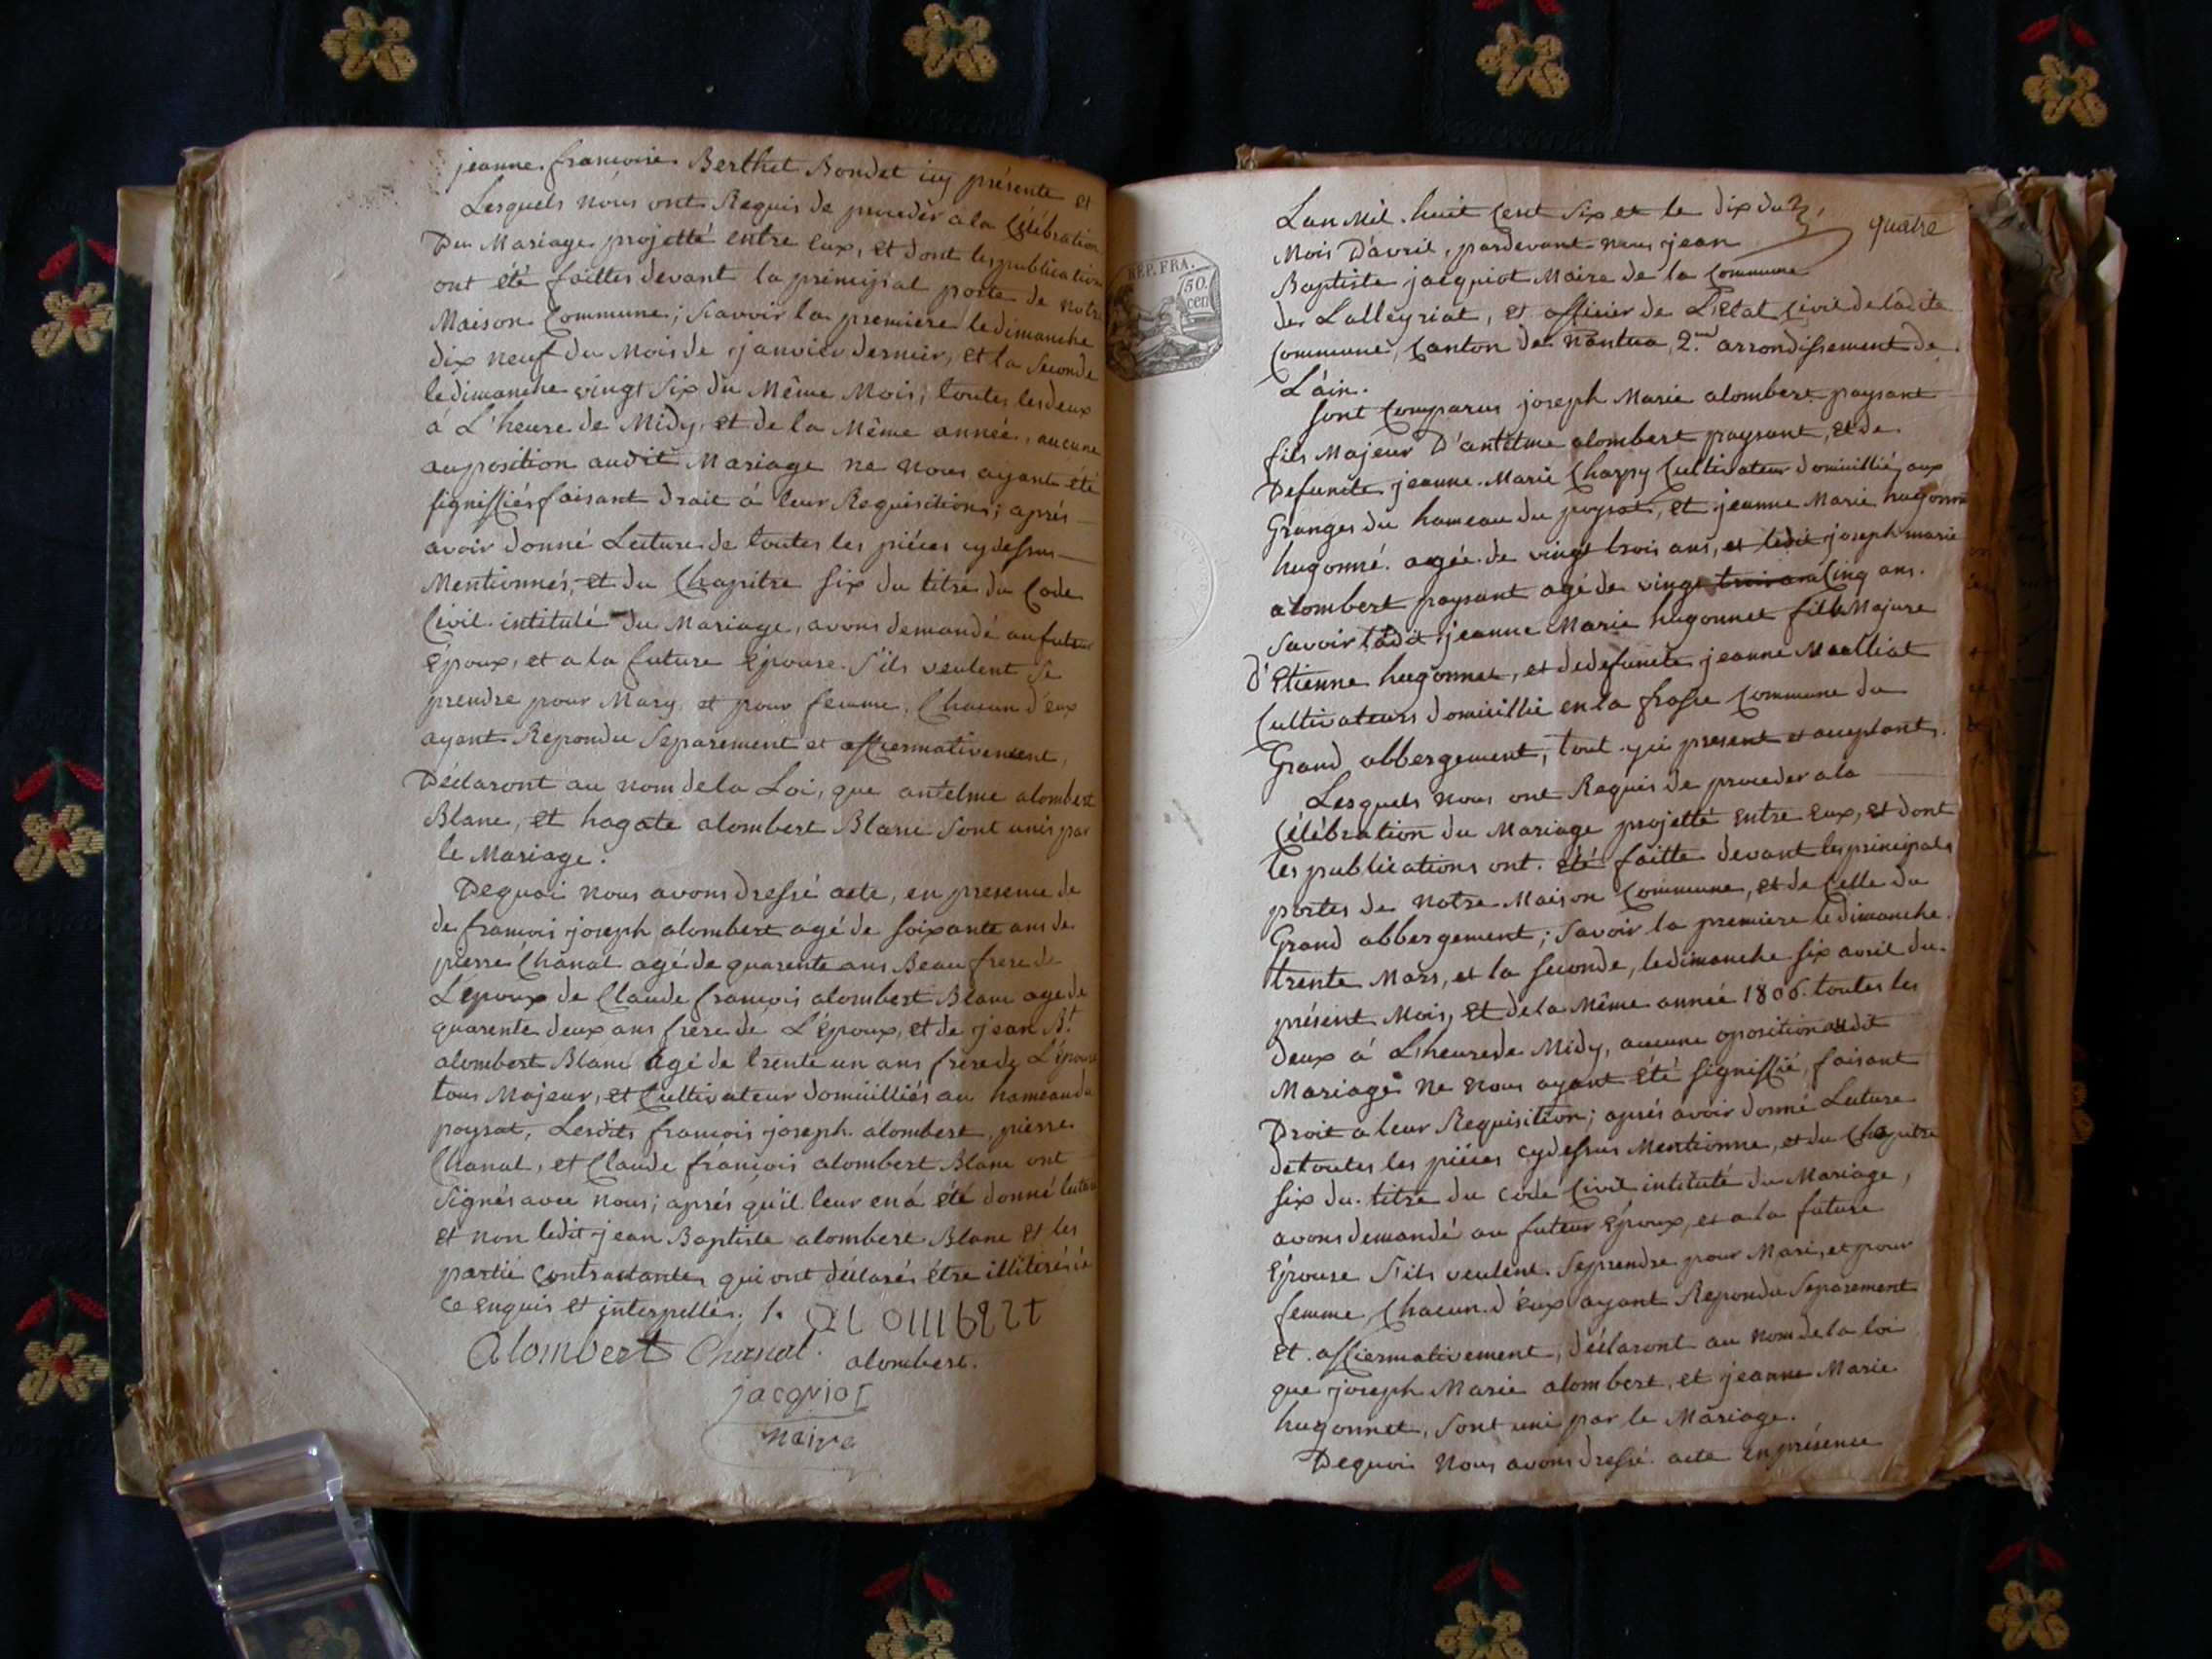 jeanne francoise Berthet Bondet icy présente et
Lesquels nous ont Requis de proceder a la Célébration
Du Mariage projetté entre eux, et dont les publication
ont été faittes devant la principal porte de notre
Maison Commune; Scavoir la premiere le dimanche
dix neuf du Mois de janvier dernier, et la Seconde
le dimanche vingt Six du Même Mois; toutes les deux
à L'heure de Midy, et de la Même année, aucune
auposition audit Mariage ne nous ayant été
signiffiés faisant Droit á leur Requisitions; aprés
avoir donné Lecture de toutes les piéces cy dessus
Mentionnés, et du Chapitre Six du titre du Code
Civil intitulé du Mariage, avons demandé au futur
époux, et a la future épouse S'ils veulent Se
prendre pour Mary et pour femme, Chacun d'eux
ayant Repondu Separement et affiermativement,
Déclaront au nom de la Loi, que antelme alombert
Blanc, et hagate alombert Blanc Sont unis par
le Mariage.
Dequoi nous avons dressé acte, en presence de
de francois joseph alombert agé de soixante ans de
pierre Chanal agé de quarente ans Beau frere de
L'époux de Claude francois alombert Blanc age de
quarente deux ans frere de L'époux, et de jean Bt
alombert Blanc agé de trente un ans frere de L'épouse
tous Majeur, et Cultivateur domicilliés au hameau du
poysat, Lesdits francois joseph alombert, pierre
Chanal, et Claude francois alombert Blanc ont
Signés avec nous; aprés qu'il leur en á été donné lecture
et non ledit jean Baptiste alombert Blanc et les
partie Contractantes qui ont declarés être illitirés
ce enquis et interpellés.
Alombert Chanal. alombert.
jacquiot
maire
quatre
Lan Mil huit Cent Six et le dix du
Mois D'avril, pardevant nous jean
Baptiste jacquiot Maire de la Commune
REP. FRA.
50.
cen
de Lalleyriat, et officier de L'Etat Civil de ladite
Commune, Canton de Nantua, 2.me arrondissement de
L'ain.
Sont Comparus joseph Marie alombert paysant
fils Majeur D'antelme alombert paysant, et de
Defuncte jeanne Marie Charpy Cultivateur domicilliés aux
Granges du hameau du poysat, et jeanne Marie hugonné
hugonné agée de vingt trois ans, et ledit joseph marie
alombert paysant agé de vingt trois ans Cinq ans.
Savoir ladit jeanne Marie hugonnet fille Majure
d'Etienne hugonnet, et de defuncte jeanne Maalliat
Cultivateurs domicillié en la frasse Commune du
Grand abbergement, tout yci present et acceptant.
Lesquels nous ont Requis de proceder a la
Célébration du Mariage projetté entre eux, et dont
les publications ont été faitte devant les principals
portes de notre Maison Commune, et de Celle du
Grand abbergement; Savoir la premiere le dimanche
trente Mars, et la Seconde, le dimanche six avril du
présent Mois, et de la Même année 1806. toutes les
deux á L'heure de Midy, aucune oposition audit
Mariage ne nous ayant été signiffié, faisant
Droit a leur Requisition; aprés avoir donné Lecture
de toutes les piéces cy dessus Mentionne, et du Chapitre
Six du titre du code Civil intitulé du Mariage,
avons demandé au futeur époux, et a la future
épouse S'ils veulent Se prendre pour Mari, et pour
femme, Chacun d'eux ayant Repondu Separement
et affiermativement, déclaront au nom de la loi
que joseph Marie alombert, et jeanne Marie
hugonnet, sont uni par le Mariage.
Dequoi nous avons dressé acte en présence